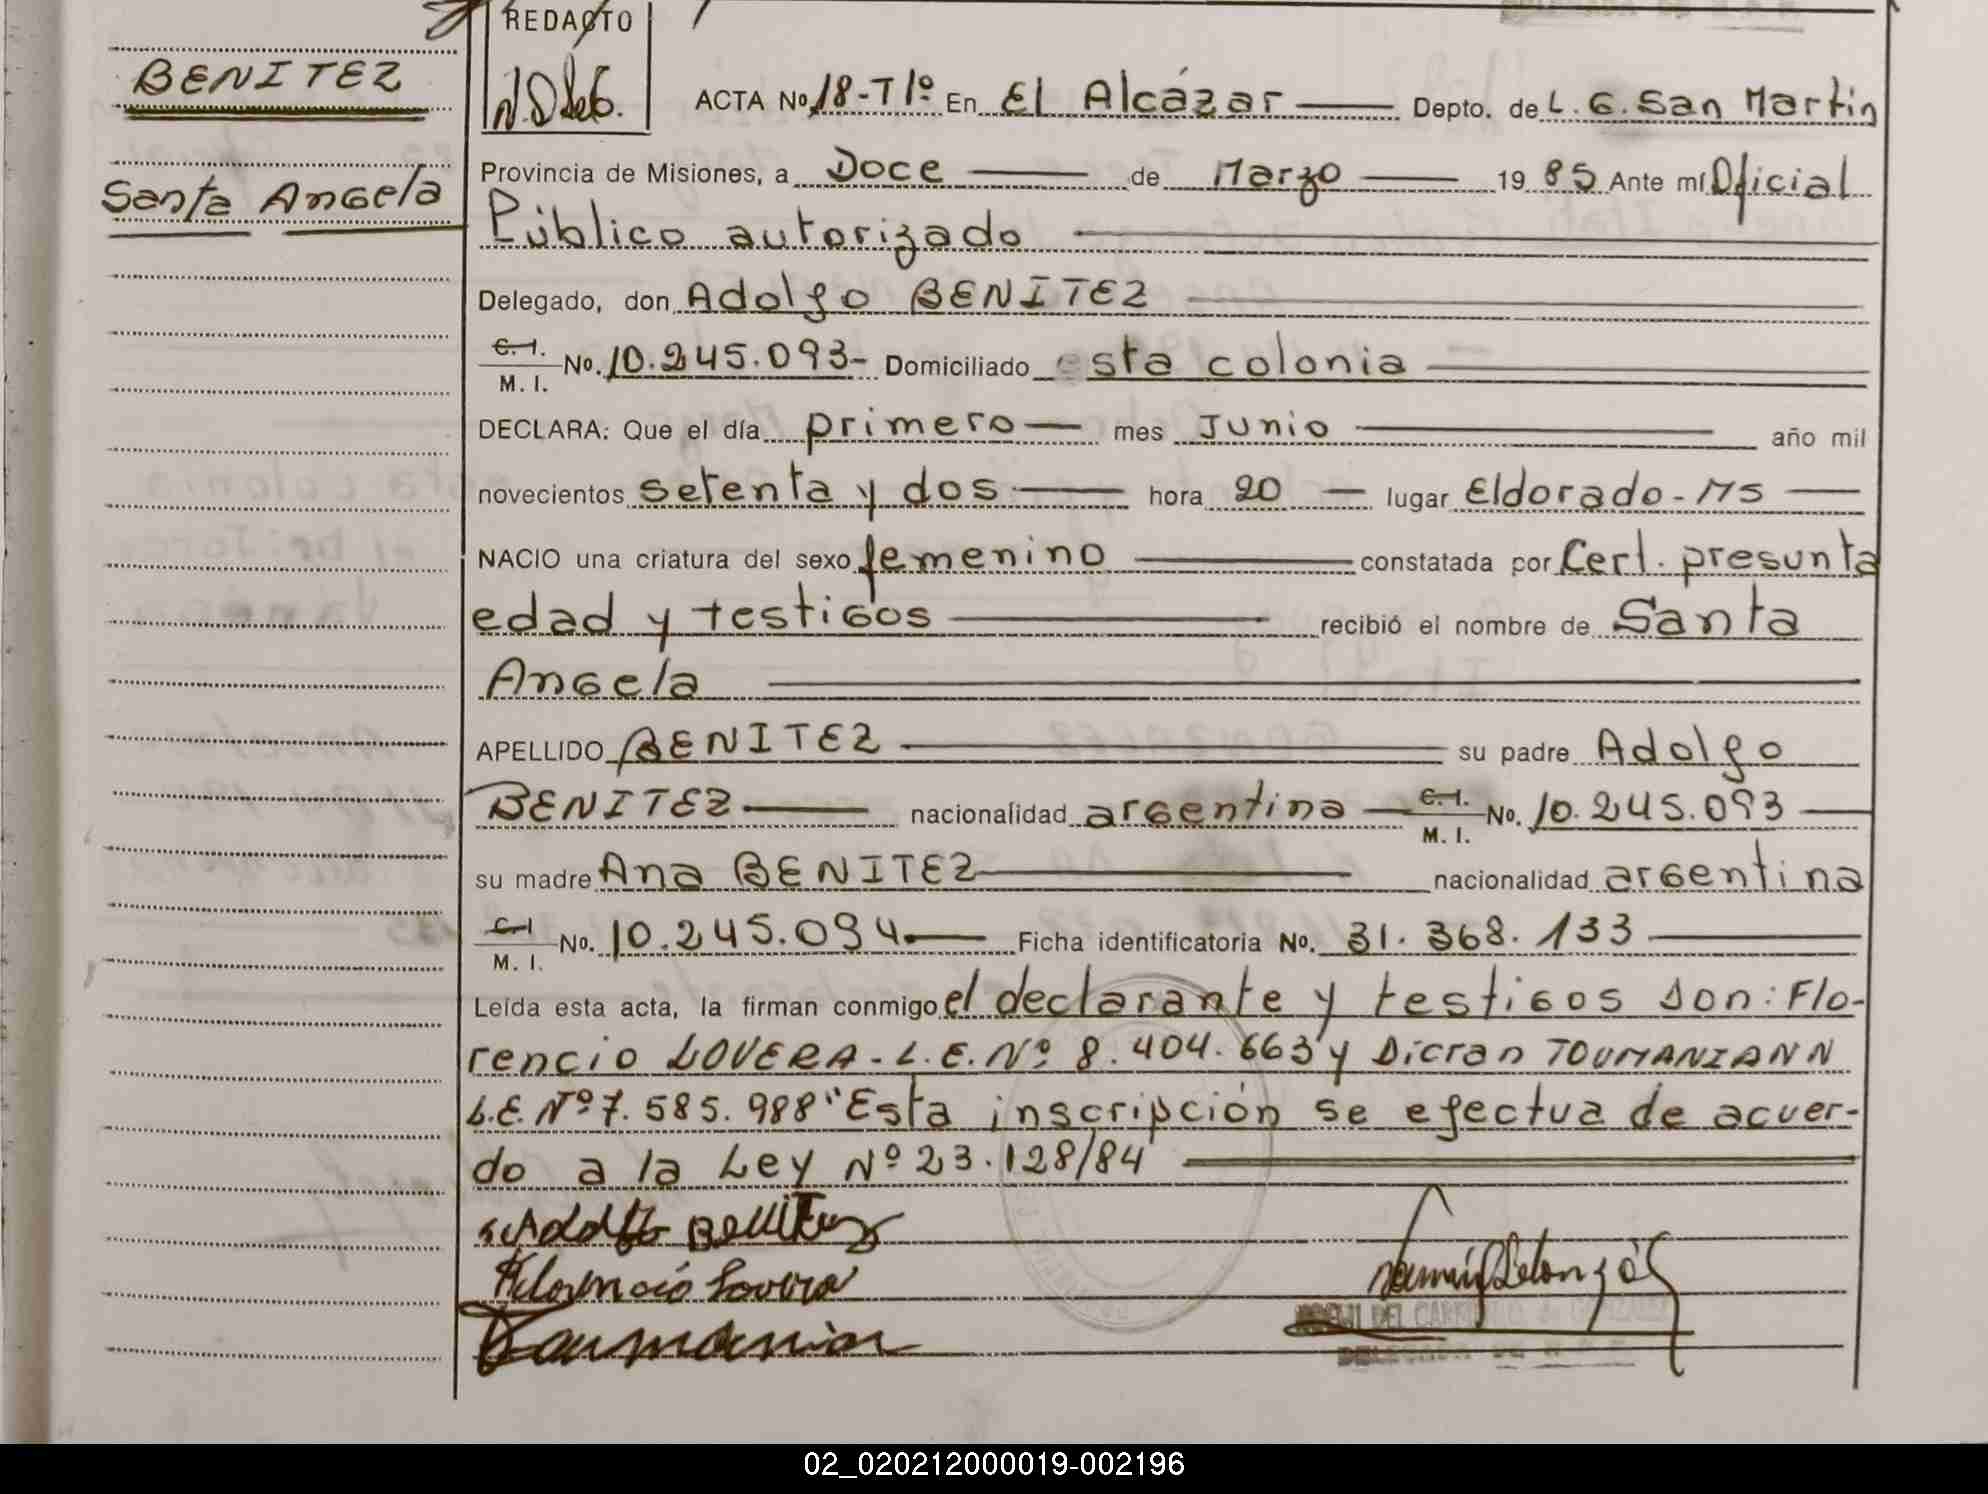 BENITEZ
Santa Angela
REDACTO
ACTA No 18-T1º En El Alcázar Depto. de L. G. San Martin
Provincia de Misiones, a Doce de Marzo 19 85 Ante mí Oficial
Público autorizado
Delegado, don Adolfo BENITEZ
C. I. M. I. No. 10.245.093- Domiciliado esta colonia
DECLARA: Que el día primero mes Junio año mil
novecientos setenta y dos hora 20 lugar Eldorado-MS
NACIO una criatura del sexo femenino constatada por Cert. presunta
edad y testigos recibió el nombre de Santa
Angela
APELLIDO BENITEZ su padre Adolfo
BENITEZ nacionalidad argentina C. I. M. I. No. 10.245.093
su madre Ana BENITEZ nacionalidad argentina
C. I. M. I. No. 10.245.094. Ficha identificatoria No. 31.368.133
Leída esta acta, la firman conmigo el declarante y testigos Don: Flo-
rencio LOVERA-L.E.Nº 8.404.663 y Dicran TOUMANIANN
L.E.Nº 7.585.988 "Esta inscripción se efectua de acuer-
do a la Ley Nº 23.128/84
Adolfo Benitez
Florencio Lovera
Toumanian
DEL CARMEN
DELEGADA
02_020212000019-002196